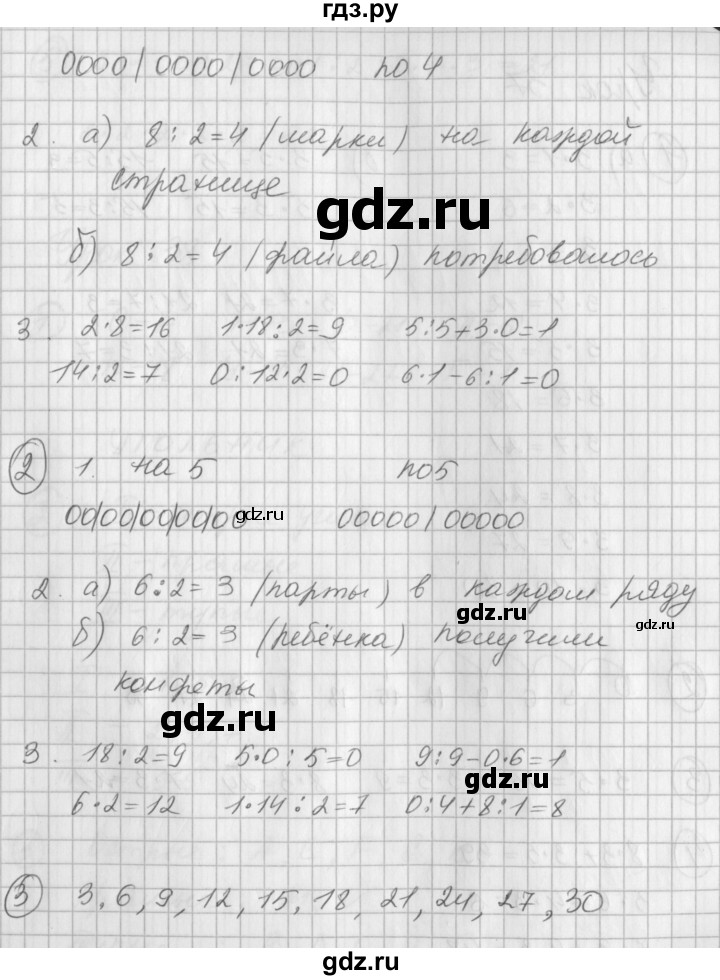 гдз.ру
0000/0000/0000 по 4
2. а) 8:2=4 (марки) на каждой
странице
gdz.ru
б) 8:2=4 (файла) потребовалось
3. 2·8=16 1·18:2=9 5:5+3·0=1
14:2=7 0:12·2=0 6·1-6:1=0
2 1. на 5 по5
00/00/00/00/00 00000/00000
gdz.ru
2. а) 6:2=3 (парты) в каждом ряду
gdz.ru
б) 6:2=3 (ребёнка) получили
конфеты
gdz.ru
3. 18:2=9 5·0:5=0 9:9-0·6=1
gdz.ru
6·2=12 1·14:2=7 0:4+8:1=8
3 3, 6, 9, 12, 15, 18, 21, 24, 27, 30
gdz.ru